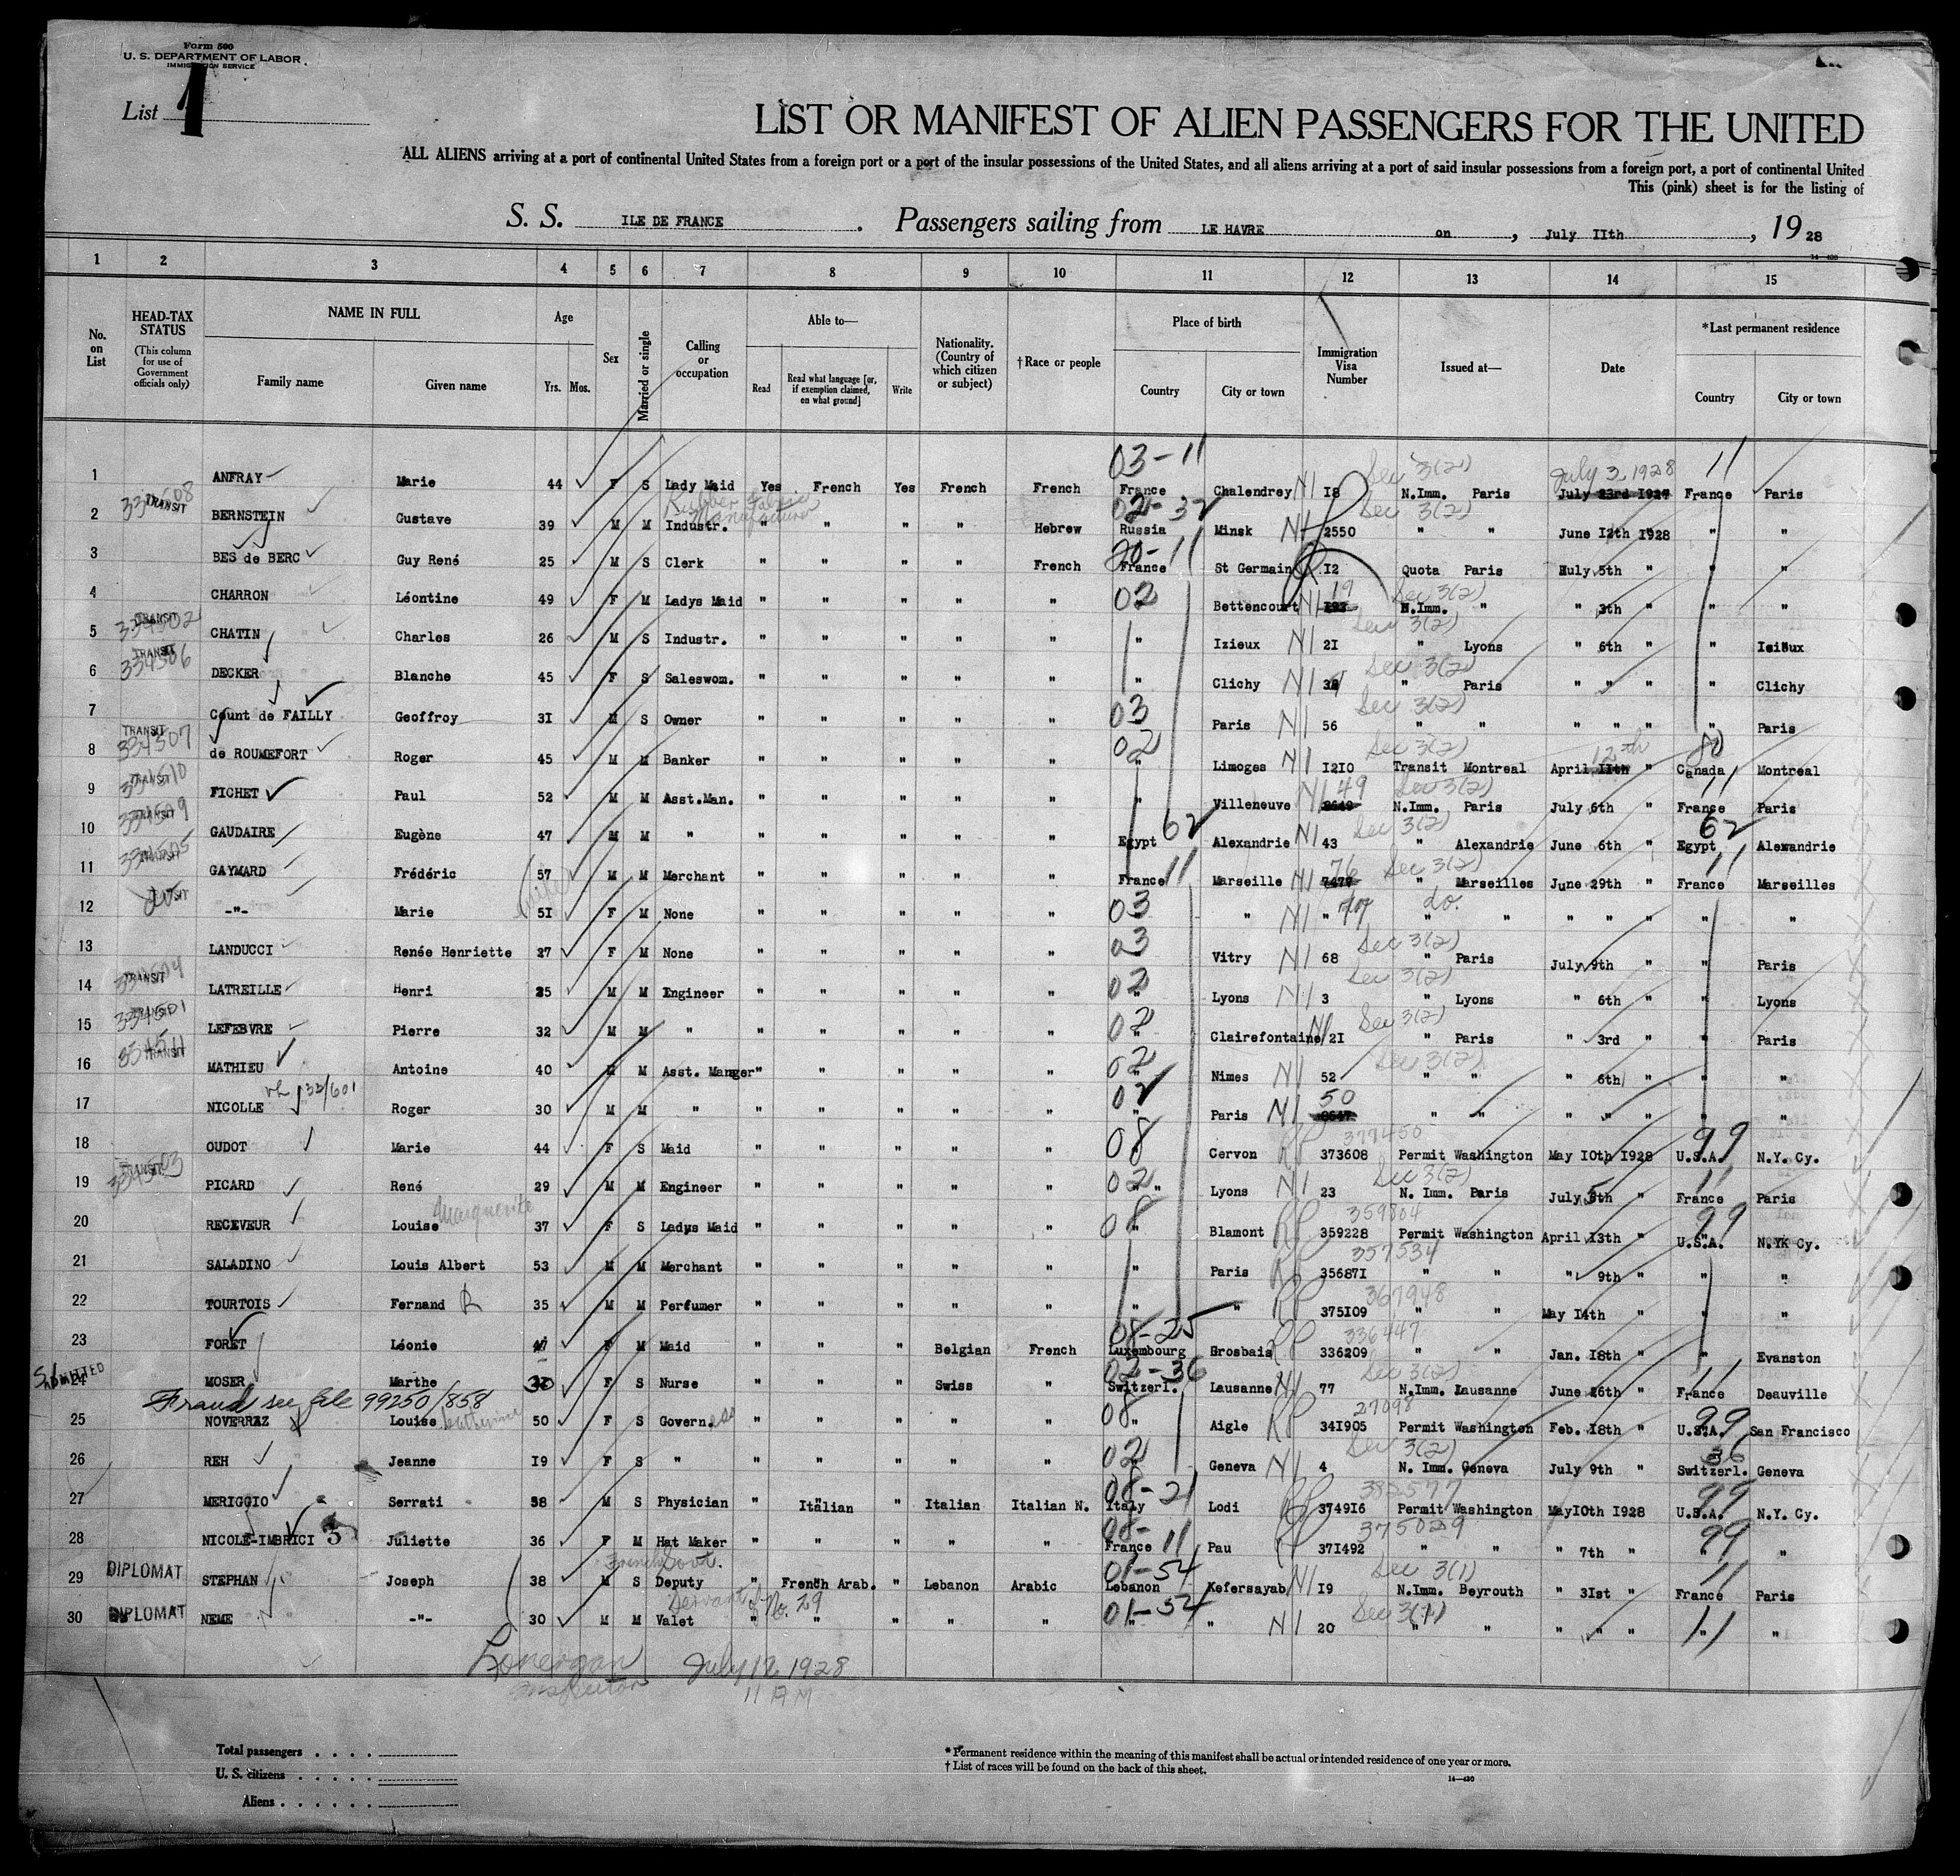 Form 500
U. S. DEPARTMENT OF LABOR
IMMIGRATION SERVICE
List 1
LIST OR MANIFEST OF ALIEN PASSENGERS FOR THE UNITED
ALL ALIENS arriving at a port of continental United States from a foreign port or a port of the insular possessions of the United States, and all aliens arriving at a port of said insular possessions from a foreign port, a port of continental United
This (pink) sheet is for the listing of
S. S. ILE DE FRANCE. Passengers sailing from LE HAVRE on, July IIth, 1928
14-420
1 2 3 4 5 6 7 8 9 10 11 12 13 14 15
No. on List
HEAD-TAX STATUS (This column for use of Government officials only)
NAME IN FULL
Family name Given name
Age Yrs. Mos.
Sex
Married or single
Calling or occupation
Able to—
Read Read what language [or, if exemption claimed, on what ground] Write
Nationality. (Country of which citizen or subject)
†Race or people
Place of birth
Country City or town
Immigration Visa Number
Issued at—
Date
*Last permanent residence
Country City or town
03-11 Sec 3(2) July 3, 1928 11
1 ANFRAY Marie 44 F S Lady Maid Yes French Yes French French France Chalendrey NI I8 N.Imm. Paris July 23rd 1927 France Paris
TRANSIT Rubber Fabric Manufacturer 02-32 Sec 3(2)
2 BERNSTEIN Gustave 39 M M Industr. " " " " Hebrew Russia Minsk NI 2550 " " June I2th I928 " "
20-11
3 BES de BERC Guy René 25 M S Clerk " " " " French France St Germain I2 Quota Paris July 5th " " "
02 19 Sec 3(2)
4 CHARRON Léontine 49 F M Ladys Maid " " " " " Bettencourt NI N.Imm. " " 3th " " "
TRANSIT 334502 Sec 3(2)
5 CHATIN Charles 26 M S Industr. " " " " " " Izieux NI 2I " Lyons " 6th " " Izieux
TRANSIT 334506 Sec 3(2)
6 DECKER Blanche 45 F S Saleswom. " " " " " " Clichy NI " Paris " " " " Clichy
03 Sec 3(2)
7 Count de FAILLY Geoffroy 3I M S Owner " " " " " Paris NI 56 " " " " " " Paris
TRANSIT 334507 02 Sec 3(2) 12th 80
8 de ROUMEFORT Roger 45 M M Banker " " " " " " Limoges NI I2I0 Transit Montreal April IIth " Canada Montreal
TRANSIT 334510 49 Sec 3(2) 11
9 FICHET Paul 52 M M Asst.Man. " " " " " " Villeneuve NI N.Imm. Paris July 6th " France Paris
TRANSIT 334509 62 Sec 3(2) 62
10 GAUDAIRE Eugène 47 M M " " " " " " Egypt Alexandrie NI 43 " Alexandrie June 6th " Egypt Alexandrie
TRANSIT 334505 11 76 Sec 3(2) 11
11 GAYMARD Frédéric 57 M M Merchant " " " " " France Marseille NI 7477 " Marseilles June 29th " France Marseilles
TRANSIT do wife 03 do.
12 -"- Marie 5I F M None " " " " " " NI " " " " " " " "
03 Sec 3(2)
13 LANDUCCI Renée Henriette 27 F M None " " " " " Vitry NI 68 " Paris July 9th " " Paris
TRANSIT 334504 02 Sec 3(2)
14 LATREILLE Henri 25 M M Engineer " " " " " " Lyons NI 3 " Lyons " 6th " " Lyons
TRANSIT 334501 02 Sec 3(2)
15 LEFEBVRE Pierre 32 M M " " " " " " " Clairefontaine NI 2I " Paris " 3rd " " Paris
TRANSIT 02 Sec 3(2)
16 MATHIEU Antoine 40 M M Asst. Manger " " " " " " Nimes NI 52 " " " 6th " " "
132/601 02 50
17 NICOLLE Roger 30 M M " " " " " " " Paris NI " " " " " " "
08 377450 99
18 OUDOT Marie 44 F S Maid " " " " " Cervon RP 373608 Permit Washington May I0th I928 U.S.A. N.Y. Cy.
TRANSIT 334503 02 Sec 3(2) 11
19 PICARD René 29 M M Engineer " " " " " " Lyons NI 23 N. Imm. Paris July 5th " France Paris
Marguerite 08 359804 99
20 RECEVEUR Louise 37 F S Ladys Maid " " " " " " Blamont RP 359228 Permit Washington April I3th " U.S.A. N.YK Cy.
357534
21 SALADINO Louis Albert 53 M M Merchant " " " " " " Paris RP 35687I " " " 9th " " "
367948
22 TOURTOIS Fernand R 35 M M Perfumer " " " " " " " RP 375I09 " " May I4th " " "
08-25 336447
23 FORET Léonie 47 F M Maid " " " Belgian French Luxembourg Grosbais RP 336209 " " Jan. I8th " " Evanston
ADMITTED 02-36 Sec 3(2) 11
24 MOSER Marthe 30 F S Nurse " " " Swiss " Switzerl. Lausanne NI 77 N.Imm. Lausanne June 26th " France Deauville
Fraud see file 99250/858 Catherine 08 27098 99
25 NOVERRAZ Louise 50 F S Governess " " " " " " Aigle RP 34I905 Permit Washington Feb. I8th " U.S.A. San Francisco
02 Sec 3(2) 36
26 REH Jeanne I9 F S " " " " " " Geneva NI 4 N. Imm. Geneva July 9th " Switzerl. Geneva
08-21 382577 99
27 MERIGGIO Serrati 38 M S Physician " Italian " Italian Italian N. Italy Lodi RP 3749I6 Permit Washington MayI0th I928 U.S.A. N.Y. Cy.
3 08-11 375029 99
28 NICOLE-IMBRICI Juliette 36 F M Hat Maker " " " " " France Pau RP 37I492 " " " 7th " " "
DIPLOMAT French Govt. 01-54 Sec 3(1) 11
29 STEPHAN Joseph 38 M S Deputy " French Arab. " Lebanon Arabic Lebanon Kefersayab NI I9 N.Imm. Beyrouth " 3Ist " France Paris
DIPLOMAT Servant of No. 29 01-54 Sec 3(1) 11
30 NEME -"- 30 M M Valet " " " " " " " NI 20 " " " " " " "
Lonergan July 18 1928
Inspector 11 AM
Total passengers . . . .
U. S. citizens . . . . .
Aliens . . . . . .
* Permanent residence within the meaning of this manifest shall be actual or intended residence of one year or more.
† List of races will be found on the back of this sheet.
14-420